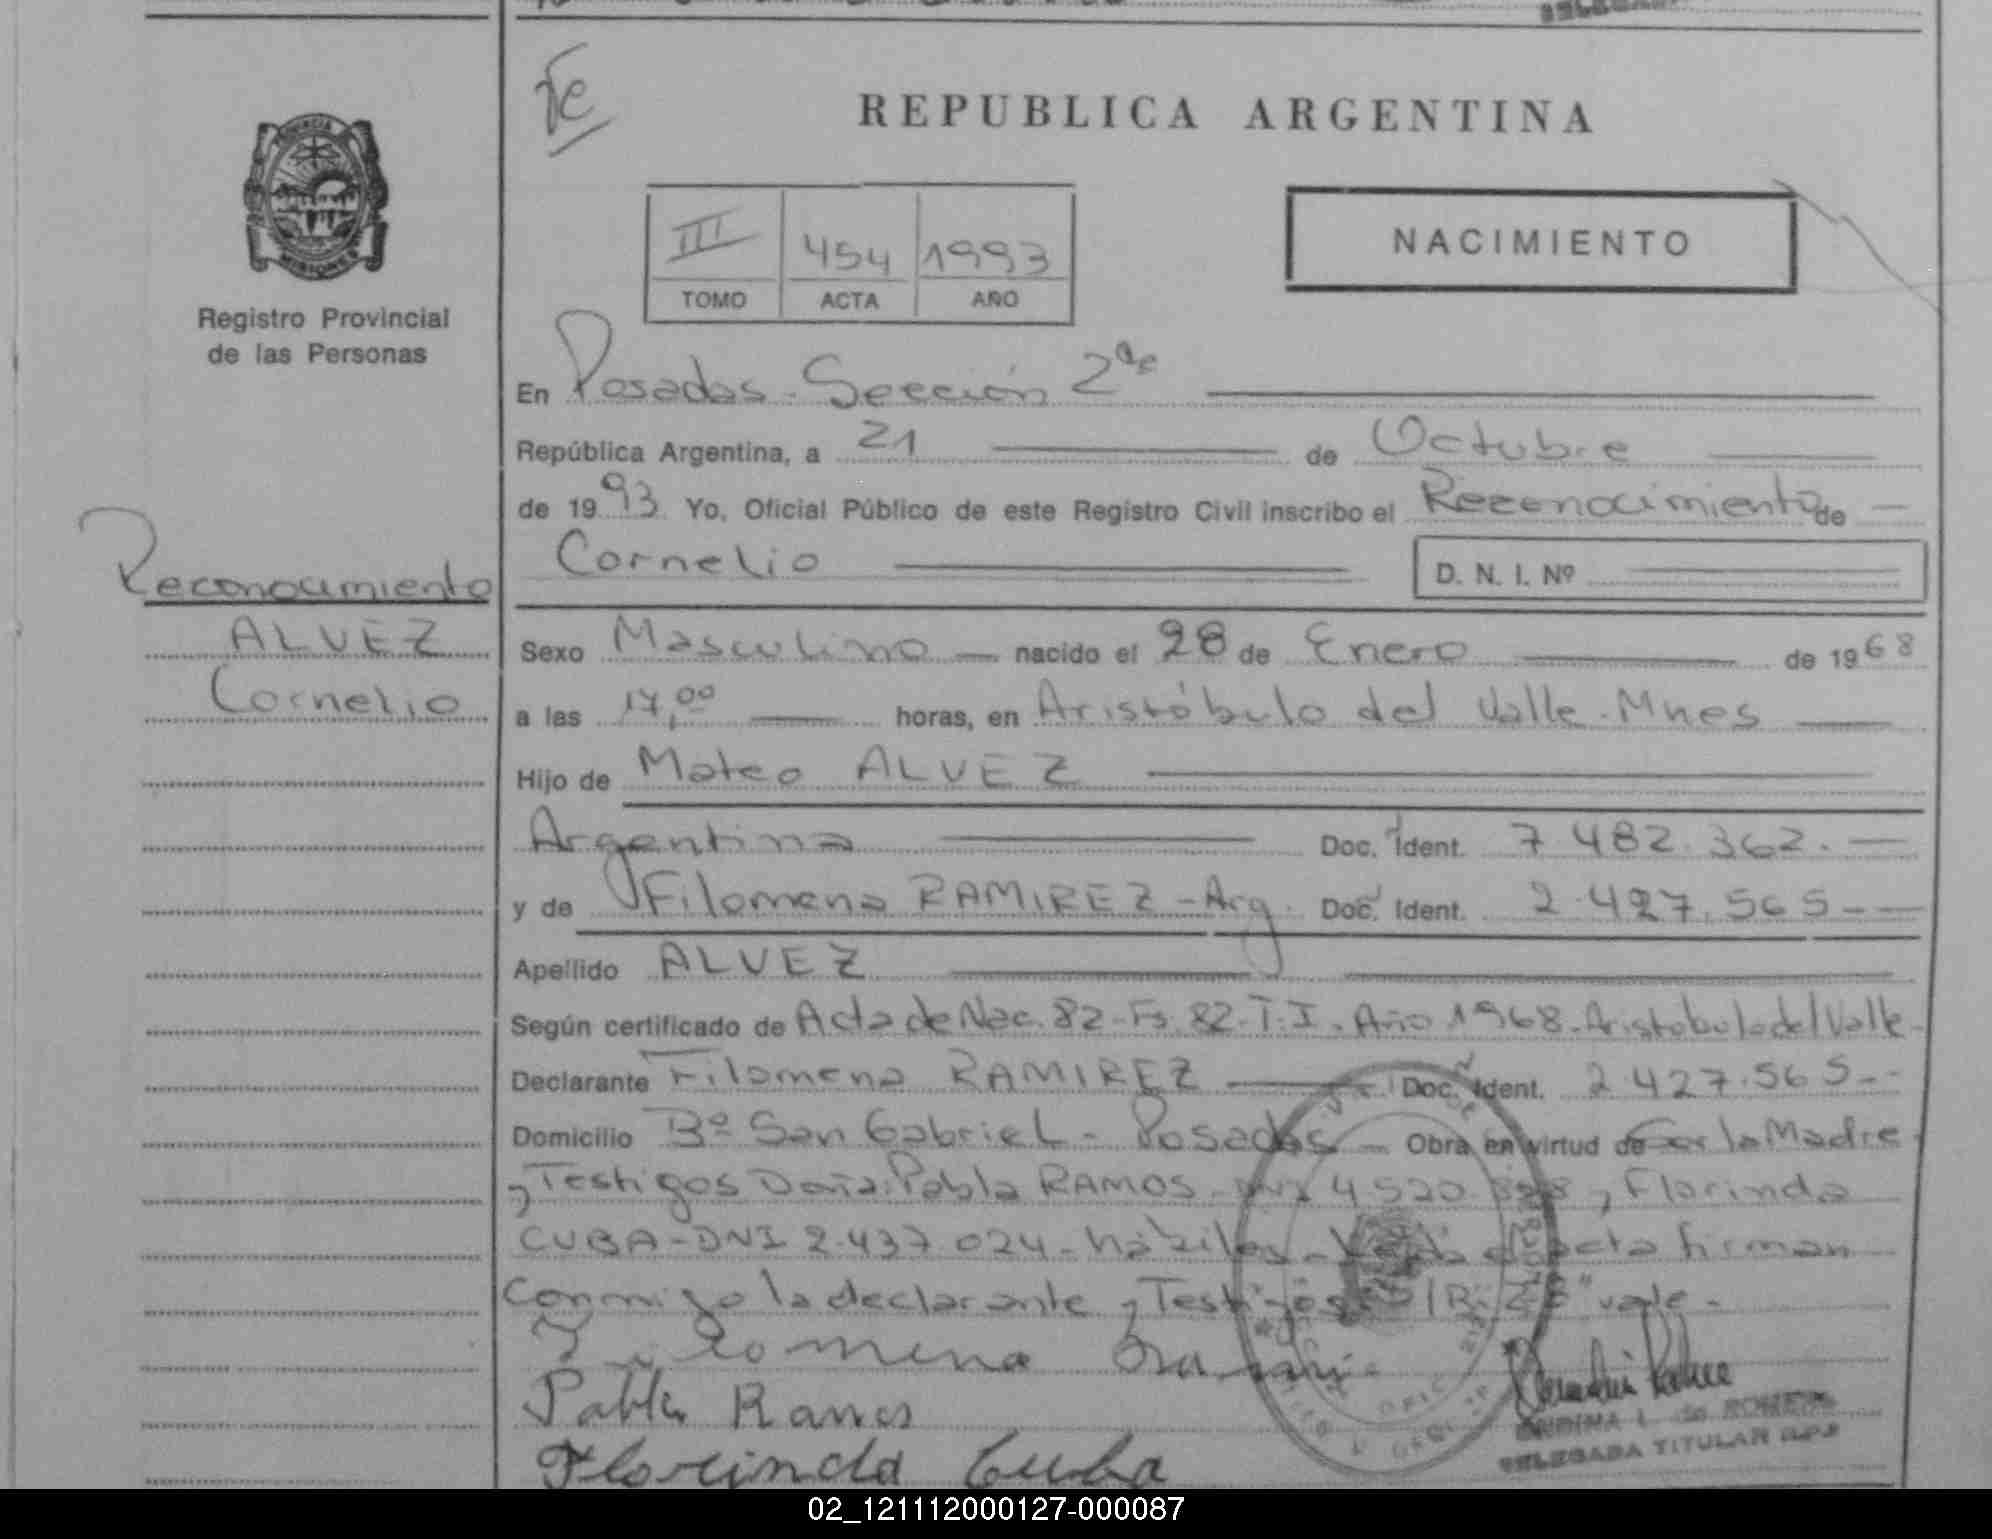 REPUBLICA ARGENTINA
III 454 1993
TOMO ACTA AÑO
NACIMIENTO
MISIONES
Registro Provincial
de las Personas
En Posadas - Sección 2da
República Argentina, a 21 de Octubre
de 1993 Yo, Oficial Público de este Registro Civil inscribo el Reconocimiento de
Cornelio D. N. I. Nº
Reconocimiento
ALVEZ
Cornelio
Sexo Masculino nacido el 28 de Enero de 1968
a las 17,00 horas, en Aristóbulo del Valle - Mnes
Hijo de Mateo ALVEZ
Argentina Doc. Ident. 7.482.362.
y de Filomena RAMIREZ - Arg. Doc. Ident. 2.427.565
Apellido ALVEZ
Según certificado de Acta de Nac. 82 - Fs. 82 - T. I. Año 1968. Aristobulo del Valle
Declarante Filomena RAMIREZ Doc. Ident. 2.427.565
Domicilio Bº San Gabriel - Posadas - Obra en virtud de Ser la Madre
y Testigos Doña: Pabla RAMOS - DNI 4.520. y Florinda
CUBA - DNI 2.437.024 - hábiles - acta firman
conmigo la declarante y Testigos vale -
Filomena Rami
Pabla Ramos
Florinda Cuba
de ROMERO
DELEGADA TITULAR R.P.P
02_121112000127-000087